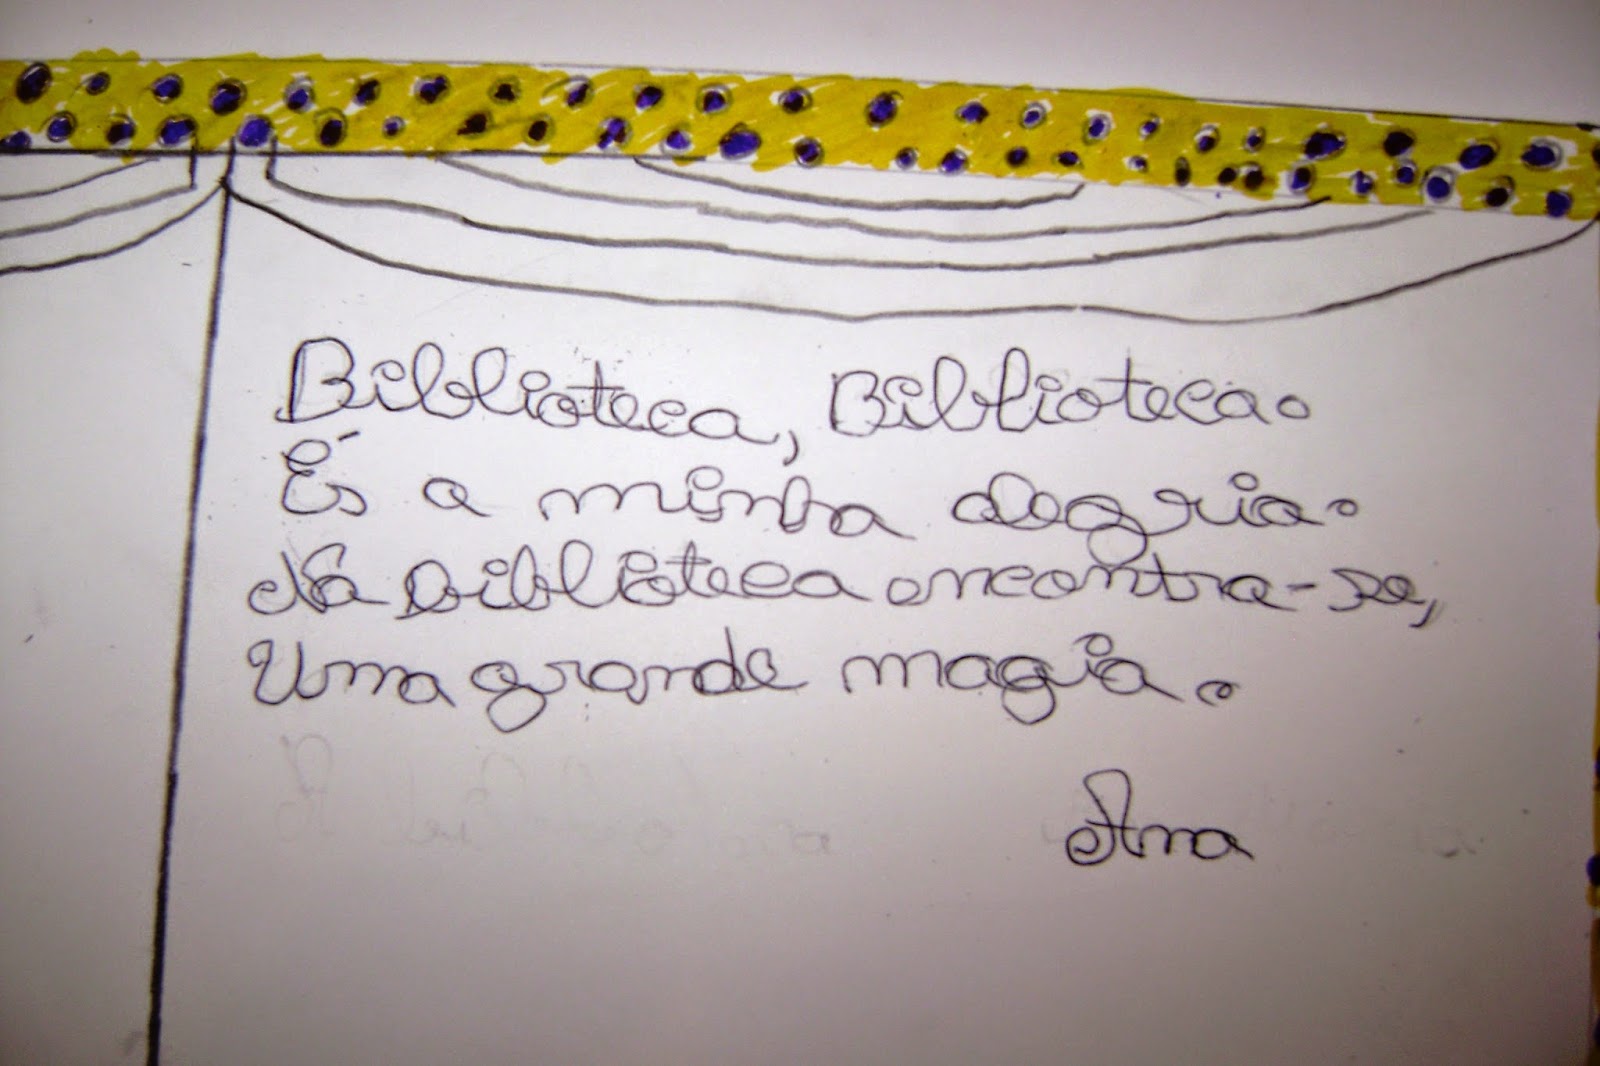 Biblioteca, Biblioteca.
És a minha alegria.
Na Biblioteca encontra-se,
Uma grande magia.
Ana